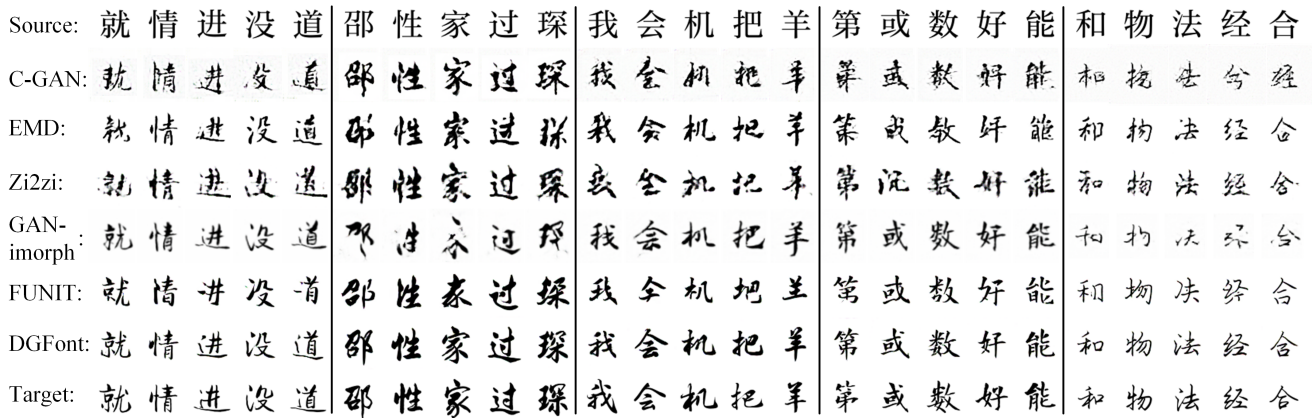 Source: 就 情 进 没 道 邵 性 家 过 琛 我 会 机 把 羊 第 或 数 好 能 和 物 法 经 合
C-GAN: 就 情 进 没 道 邵 性 家 过 琛 我 会 机 把 羊 第 或 数 好 能 和
EMD: 就 情 进 没 道 邵 性 家 过 琛 我 会 机 把 羊 第 或 数 好 能 和 物 法 经 合
Zi2zi: 就 情 进 没 道 邵 性 家 过 琛 我 机 把 羊 第 数 好 能 和 物 法 经 合
GAN-imorph: 就 情 进 没 道 过 我 会 机 把 羊 第 或 数 好 能 和 合
FUNIT: 就 情 进 没 道 邵 性 家 过 琛 我 会 机 把 羊 第 或 数 好 能 和 物 法 经 合
DGFont: 就 情 进 没 道 邵 性 家 过 琛 我 会 机 把 羊 第 或 数 好 能 和 物 法 经 合
Target: 就 情 进 没 道 邵 性 家 过 琛 我 会 机 把 羊 第 或 数 好 能 和 物 法 经 合